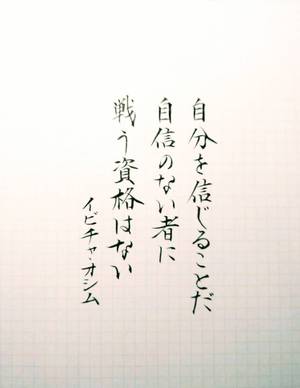 自分を信じることだ
自信のない者に
戦う資格はない
イビチャ・オシム